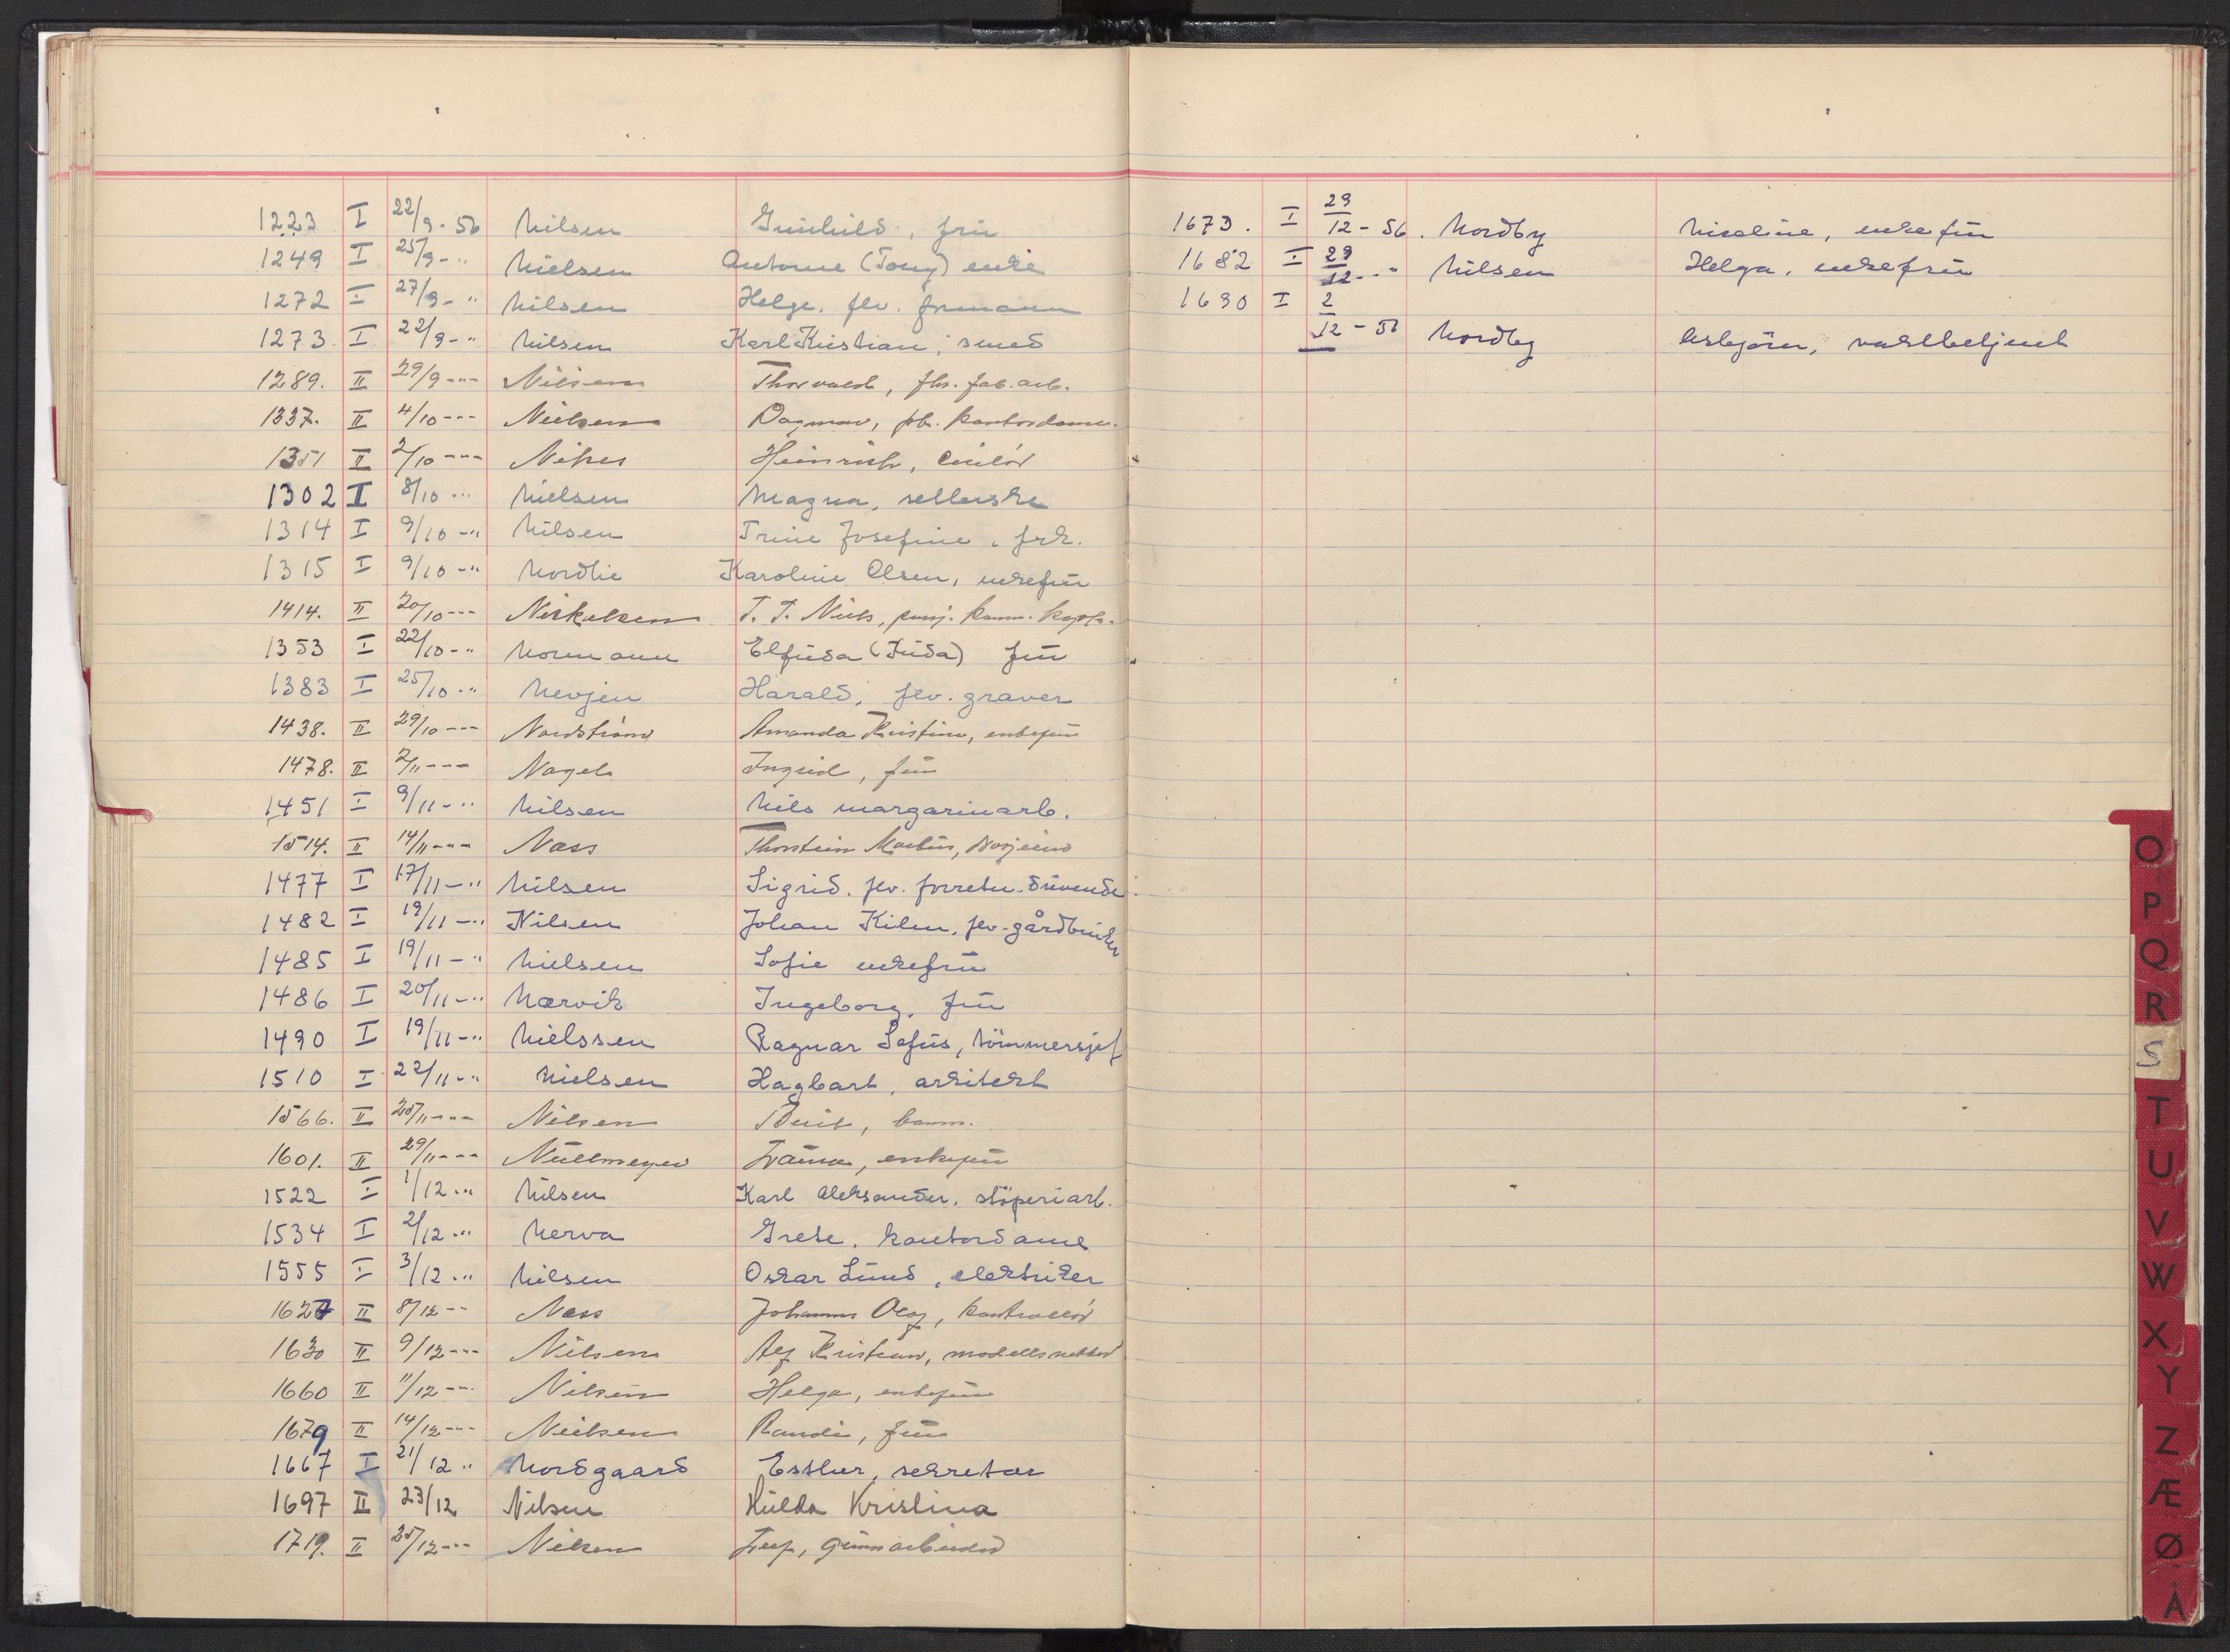 1223 I 22/9-56 Nilsen Gunhild, frü
1249 I 25/9-" Nielsen Antonie (Tony) enke
1272 I 27/9-" Nilsen Helge. flv. formann
1273 I 22/9-" Nilsen Karl Kristian, smed
1289. II 29/9-"- Nilsen Thorvald, fhv. fab. arb.
1337. II 4/10-"- Nielsen Dagmar, fhv. kontordame.
1351 II 2/10-"- Heinrich,
1302 I 8/10-" Nielsen Magna, selterske
1314 I 9/10-" Nilsen Trine Josefine, frk.
1315 I 9/10-" Nordlie Karoline Olsen, enkefrü
1414. II 20/10-"- T. T. Niels, pensj.
1353 I 22/10-" Normann Elfüda (Düda) frü
1383 I 25/10-" Nevjen Harald, flv. graver
1438. II 29/10-"- Nordström Amanda Kristine, enkefrü
1478. II 2/11-"- Nagel Ingrid, frü
1451 I 9/11-" Nilsen Nils margarinarb.
1514. II 14/11-"- Næss Thorstein Martin,
1477 I 17/11-" Nilsen Sigrid. flv. forretn. drivende
1482 I 19/11-" Nilsen Johan Kilen, flv. gårdbrüker
1485 I 19/11-" Nielsen Sofie enkefrü
1486 I 20/11-" Nærvik Ingeborg, frü
1490 I 19/11-" Nielssen Ragnar Sofüs, tömmersjef
1510 I 22/11-" Nielsen Hagbart, arkitekt
1566. II 25/11-"- Nilsen Berit, barn.
1601. II 29/11-"- Nüllmeyer enkefrü
1522 I 1/12-" Nilsen Karl Aleksander, stöperiarb.
1534 I 2/12-" Nerva Grete, kontordame
1555 I 3/12-" Nilsen Oskar Lünd, elektriker
1627 II 8/12-" Næss Johannes Olaf, kontrollör
1630 II 9/12-"- Nilsen Alf Kristian, modellsnekker
1660 II 11/12-" Nilsen Helga, enkefrü
1679 II 14/12-"- Nielsen Randi, frü
1667 I 21/12-" Nordgaard Esther, sekretær
1697 II 23/12 Nilsen Hülda Kristina
1719. II 25/12-"- Nilsen Leif, gümmiarbeider
1673. I 29/12-56. Nordby Nicoline, enkefrü
1682 I 29/12-" Nilsen Helga, enkefrü
1690 I 2/12-56 Nordby Asbjörn, vaktbetjent
O
P
Q
R
S
T
U
V
W
X
Y
Z
Æ
Ø
Å